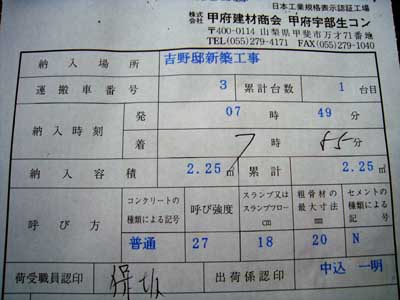 日本工業規格表示認証工場
株式会社 甲府建材商会 甲府宇部生コン
〒400-0114 山梨県甲斐市万才71番地
TEL(055)279-4171 FAX(055)279-1040
納入場所 吉野邸新築工事
運搬車番号 3 累計台数 1 台目
納入時刻 発 07 時 49 分
着 7 時 55 分
納入容積 2.25 ㎥ 累計 2.25 ㎥
呼び方 コンクリートの種類による記号 呼び強度 スランプ又はスランプフロー cm 粗骨材の最大寸法 mm セメントの種類による記号
普通 27 18 20 N
荷受職員認印 出荷係認印 中込 一明